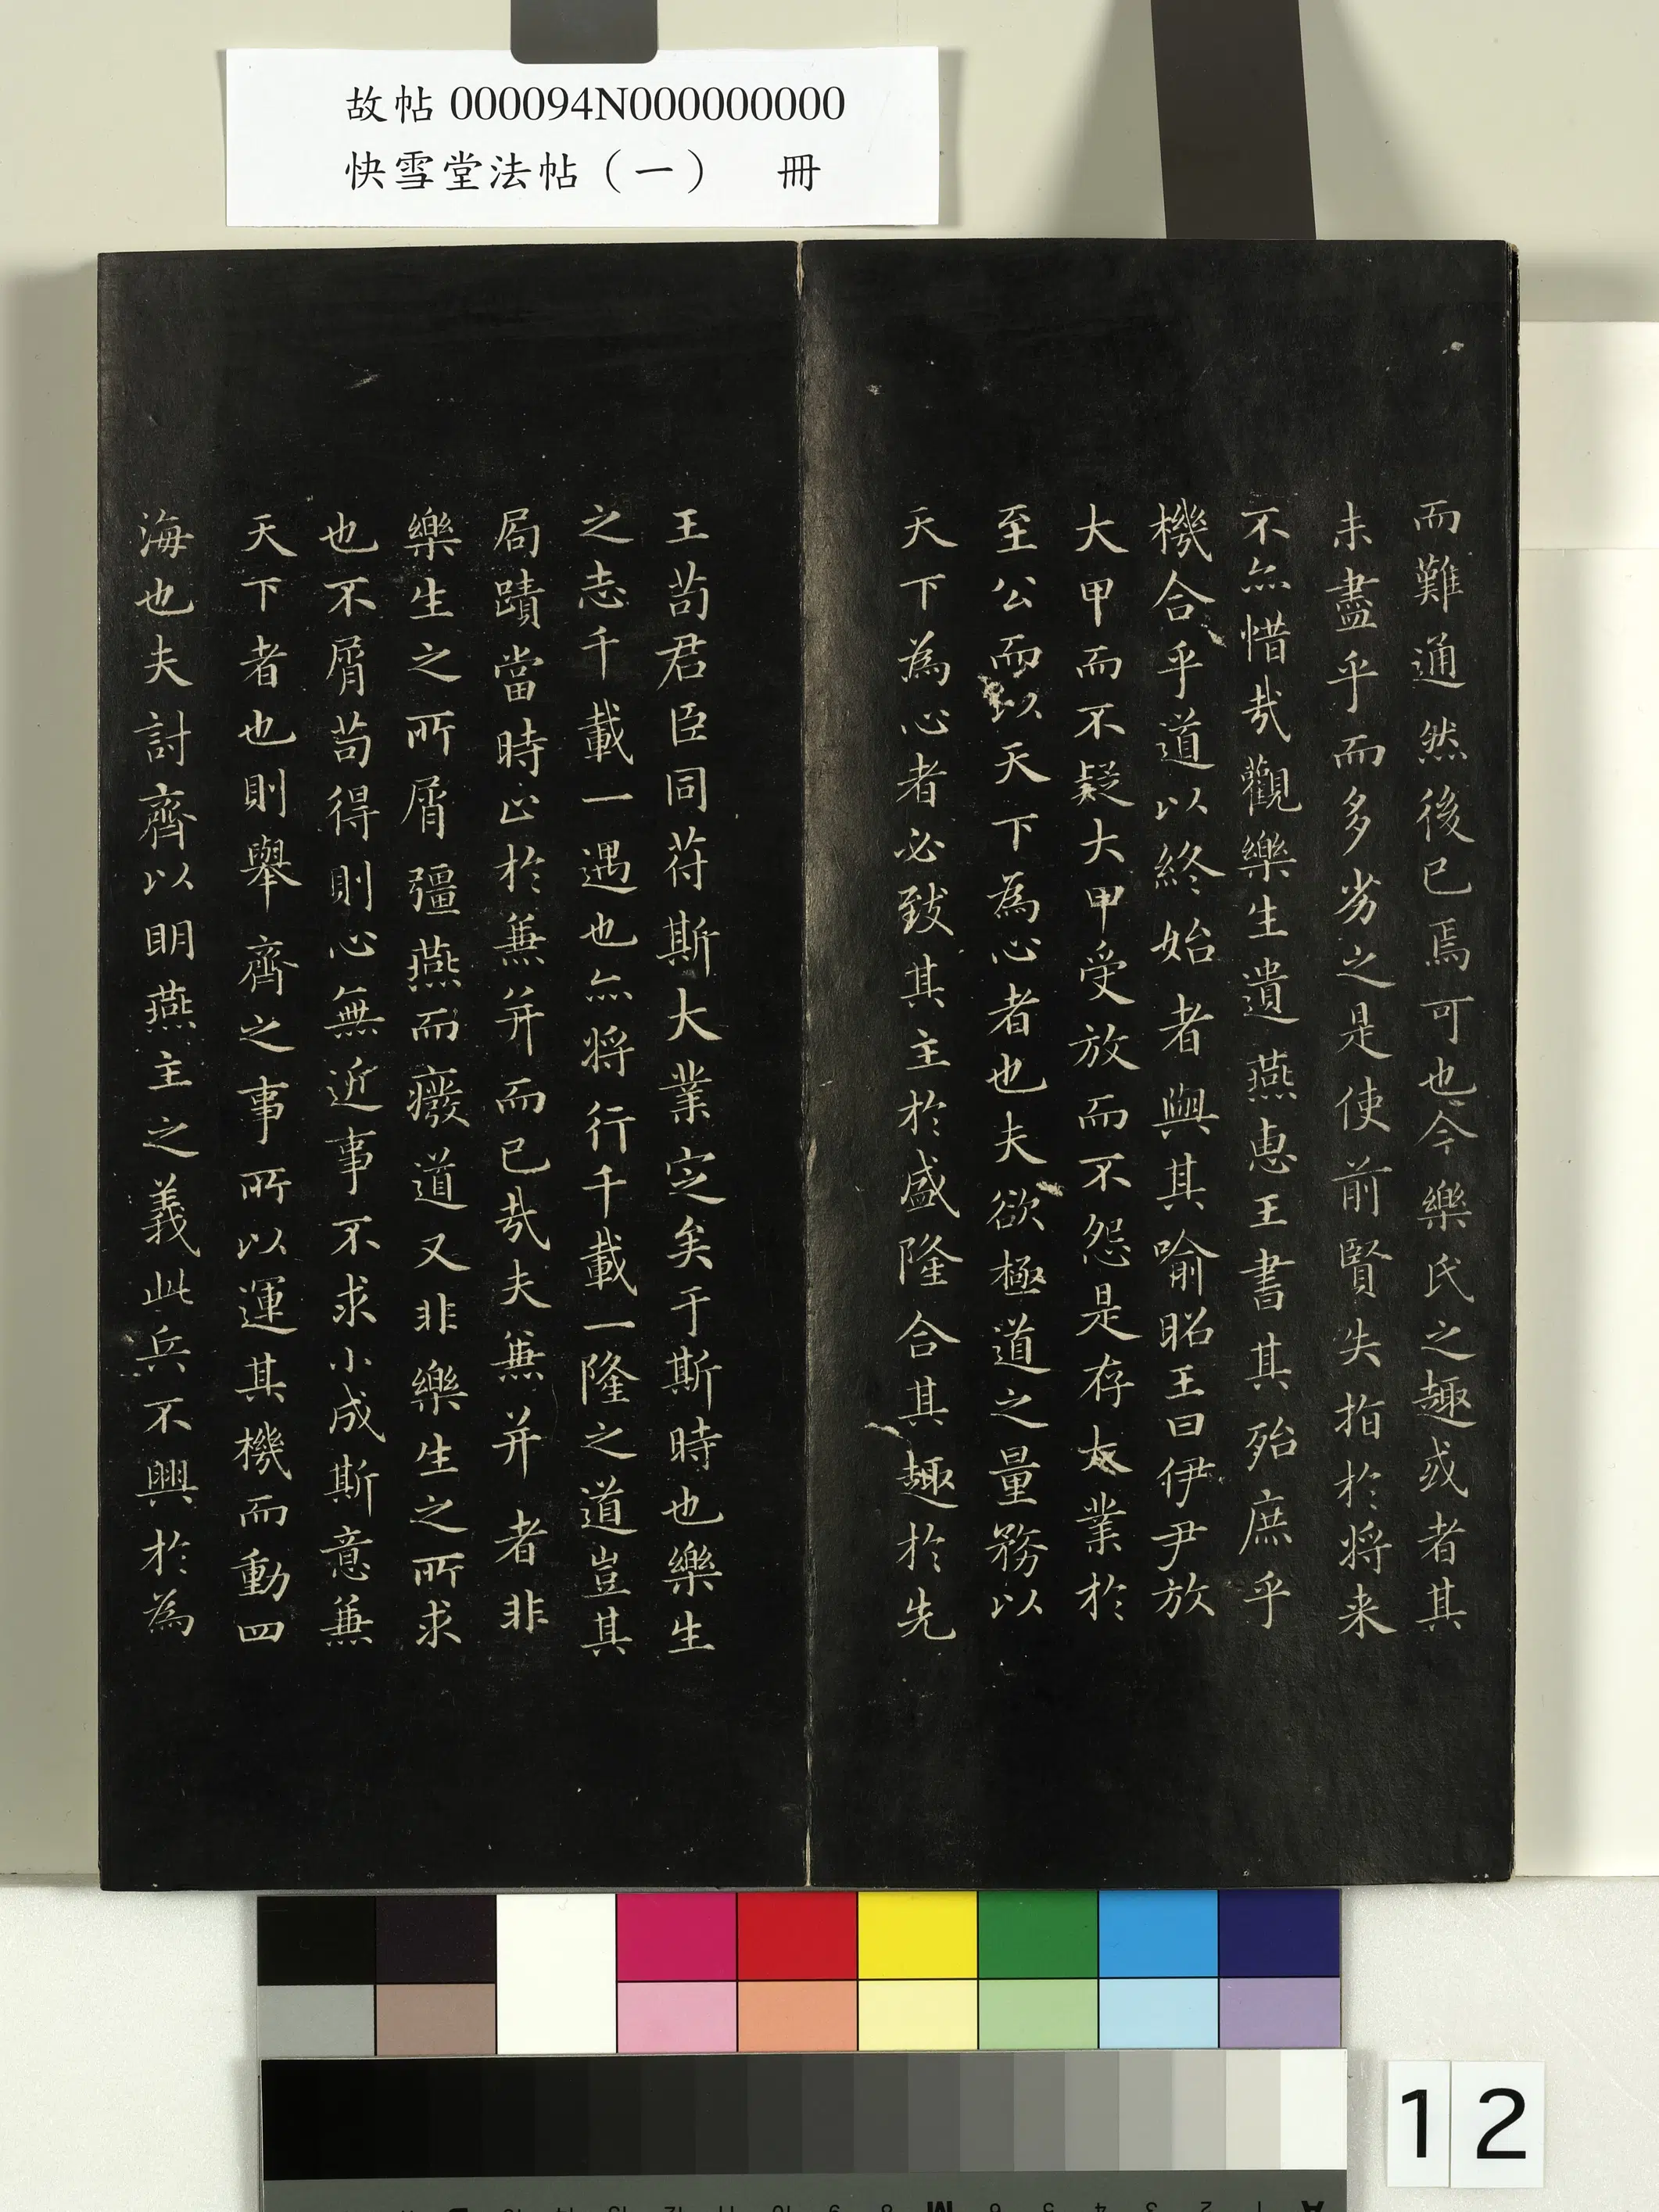 故帖 000094N000000000
快雪堂法帖（一）　冊
而難通然後已焉可也今樂氏之趣或者其
未盡乎而多劣之是使前賢失指於将来
不亦惜哉觀樂生遺燕惠王書其殆庶乎
機合乎道以終始者與其喻昭王曰伊尹放
大甲而不疑大甲受放而不怨是存大業於
至公而以天下為心者也夫欲極道之量務以
天下為心者必致其主於盛隆合其趣於先
王苟君臣同苻斯大業定矣于斯時也樂生
之志千載一遇也亦将行千載一隆之道豈其
局蹟當時止於兼并而已哉夫兼并者非
樂生之所屑彊燕而癈道又非樂生之所求
也不屑苟得則心無近事不求小成斯意兼
天下者也則舉齊之事所以運其機而動四
海也夫討齊以明燕主之義此兵不興於為
12